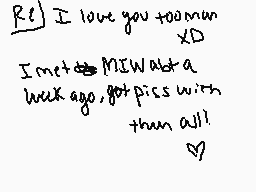 Re] I love you too man
XD
I met MIW abt a
week ago, got piss with
them all!
♡